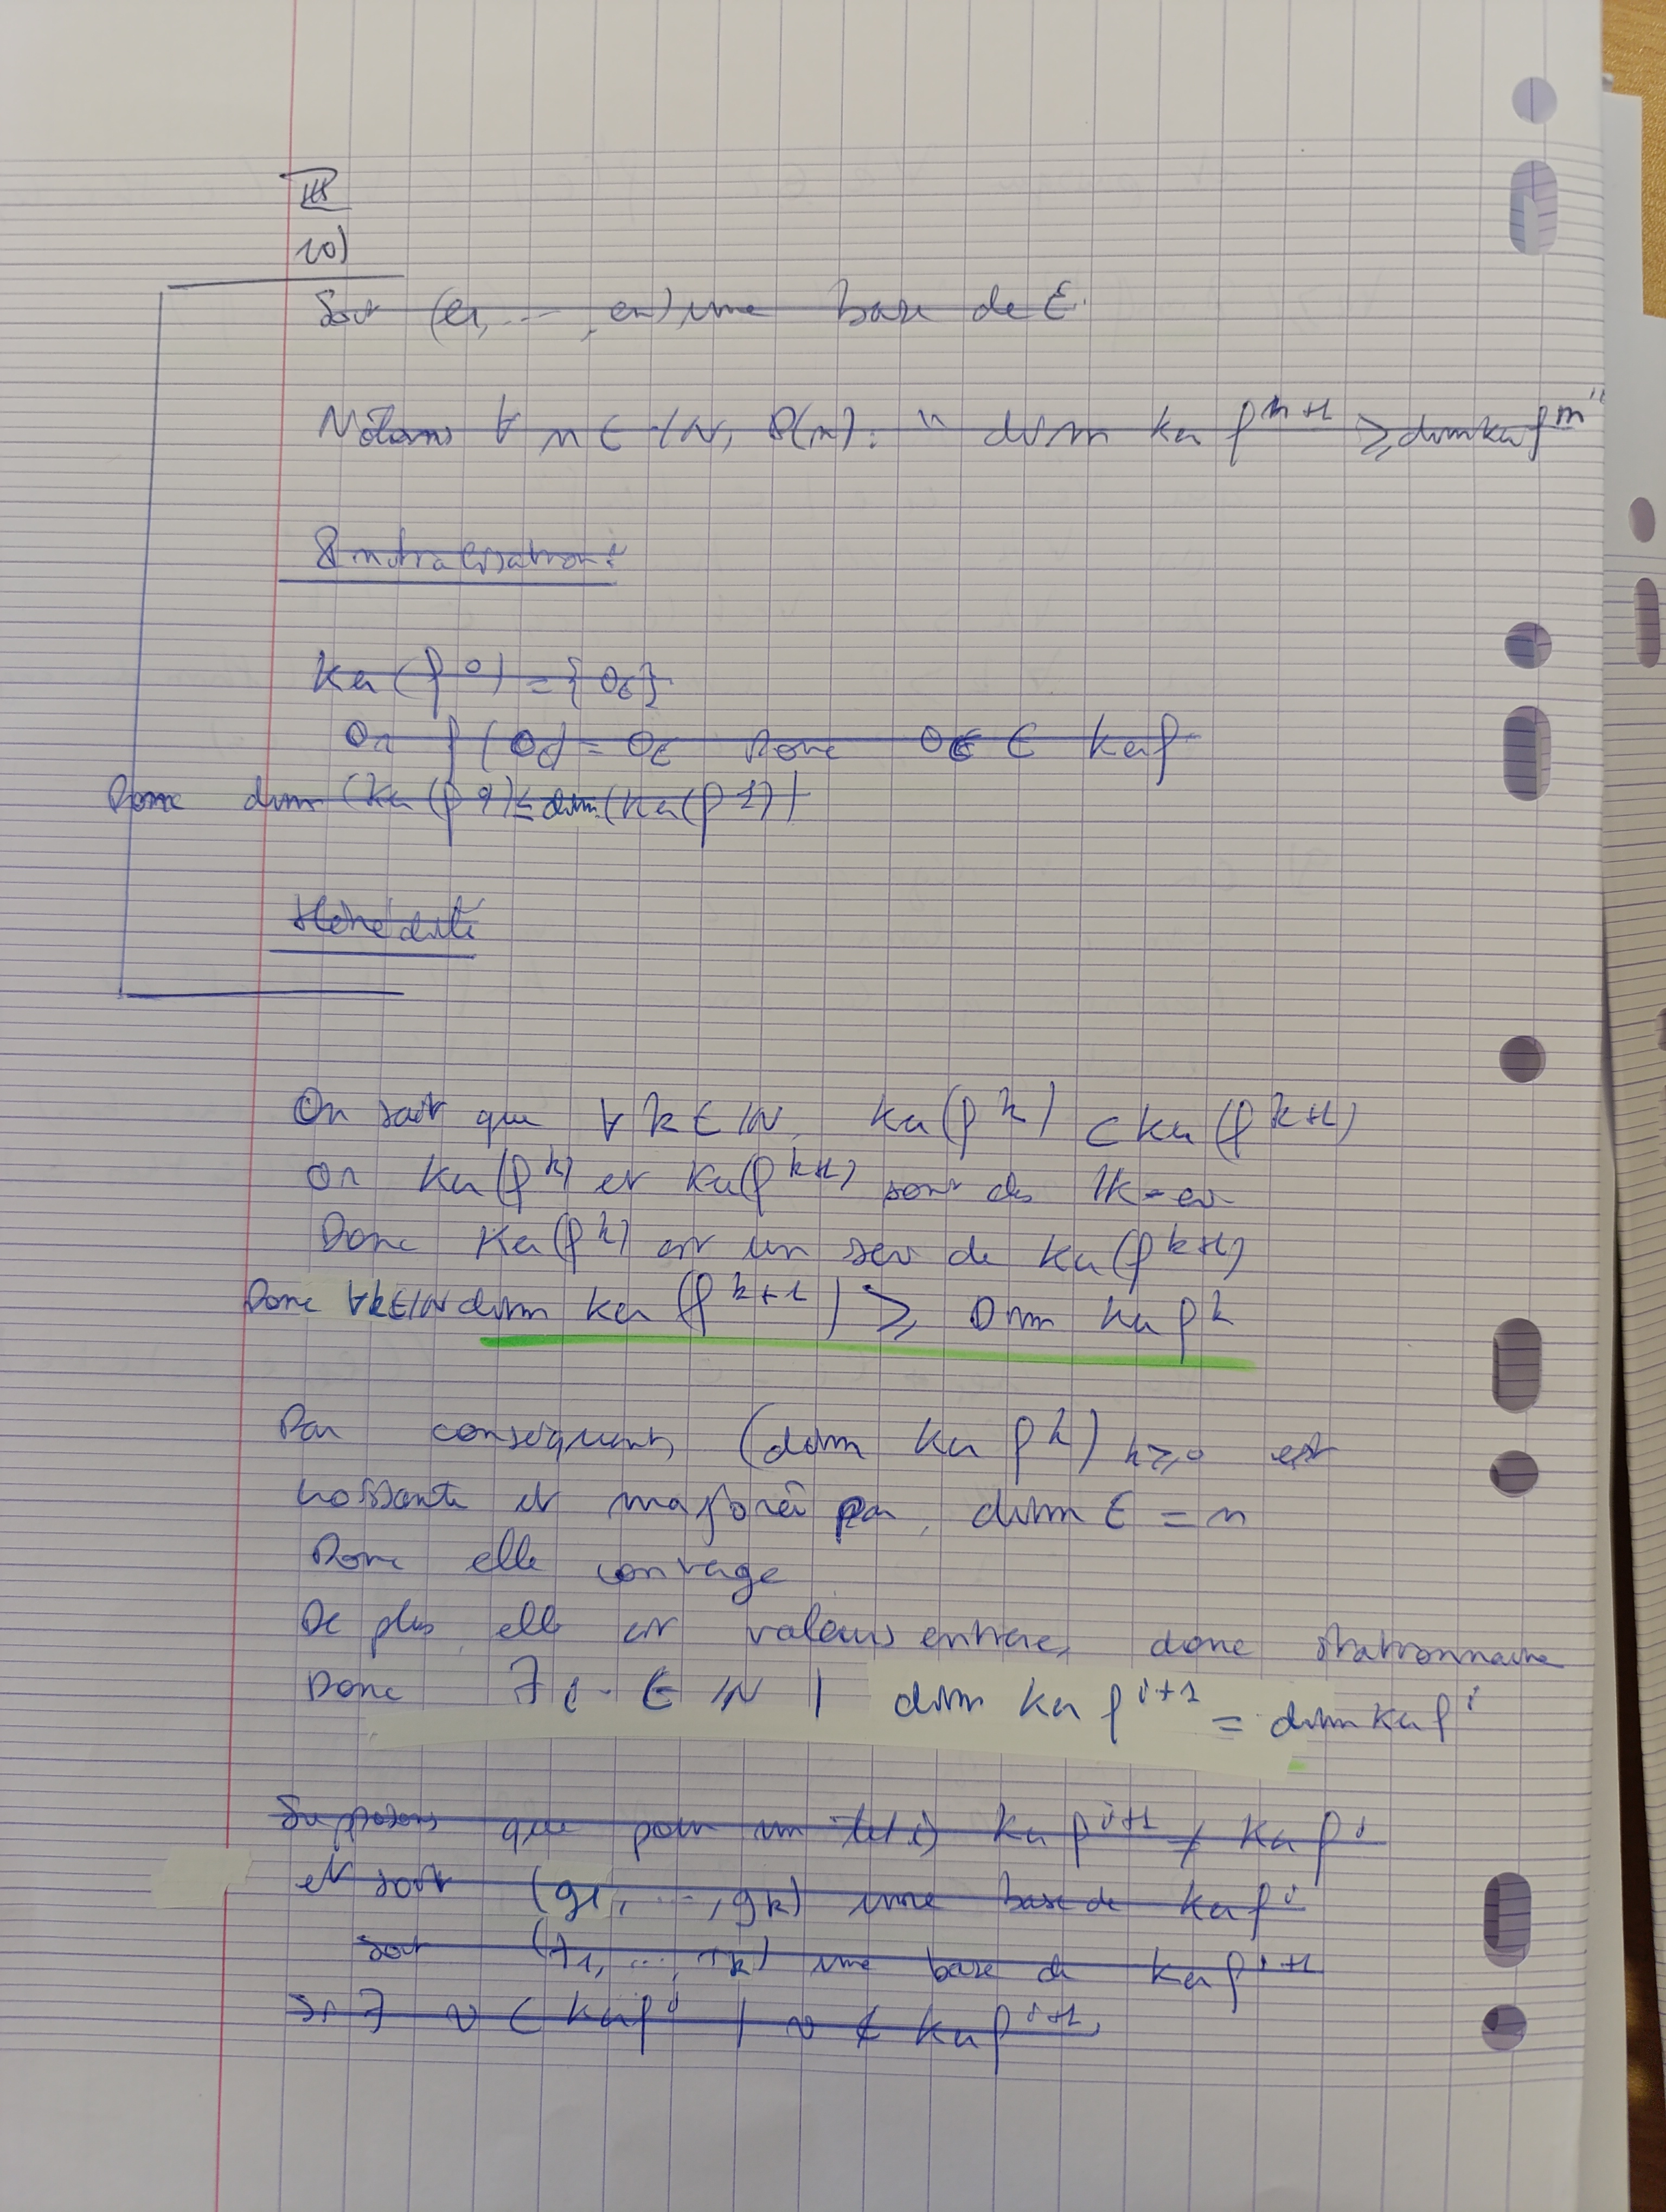 III
10)
Soit (e1, ..., en) une base de E.
Notons ∀ n ∈ IN, P(n): " dim ker f^{n+1} ≥ dim ker f^n "
Initialisation :
Ker (f^0) = {0_E}
Or f(0_E) = 0_E Donc 0_E ∈ Ker f
Donc dim (Ker (f^0)) ≤ dim (Ker (f^1))
Hérédité
On sait que ∀ k ∈ IN, Ker(f^k) ⊂ Ker (f^{k+1})
Or Ker(f^k) et Ker(f^{k+1}) sont des IK-ev
Donc Ker(f^k) est un sev de Ker(f^{k+1})
Donc ∀k∈IN dim Ker (f^{k+1}) ≥ Dim Ker f^k
Par conséquent, (dim Ker f^k)_{k≥0} est
croissante et majorée par dim E = n
Donc elle converge
De plus, elle est valeurs entière, donc stationnaire
Donc ∃ i ∈ IN | dim Ker f^{i+1} = dim Ker f^i
Supposons que pour un tel i, Ker f^{i+1} ≠ Ker f^i
et soit (g1, ..., gk) une base de Ker f^i
soit (f1, ..., fk) une base de Ker f^{i+1}
Si ∃ v ∈ Ker f^i | v ∉ Ker f^{i+1},